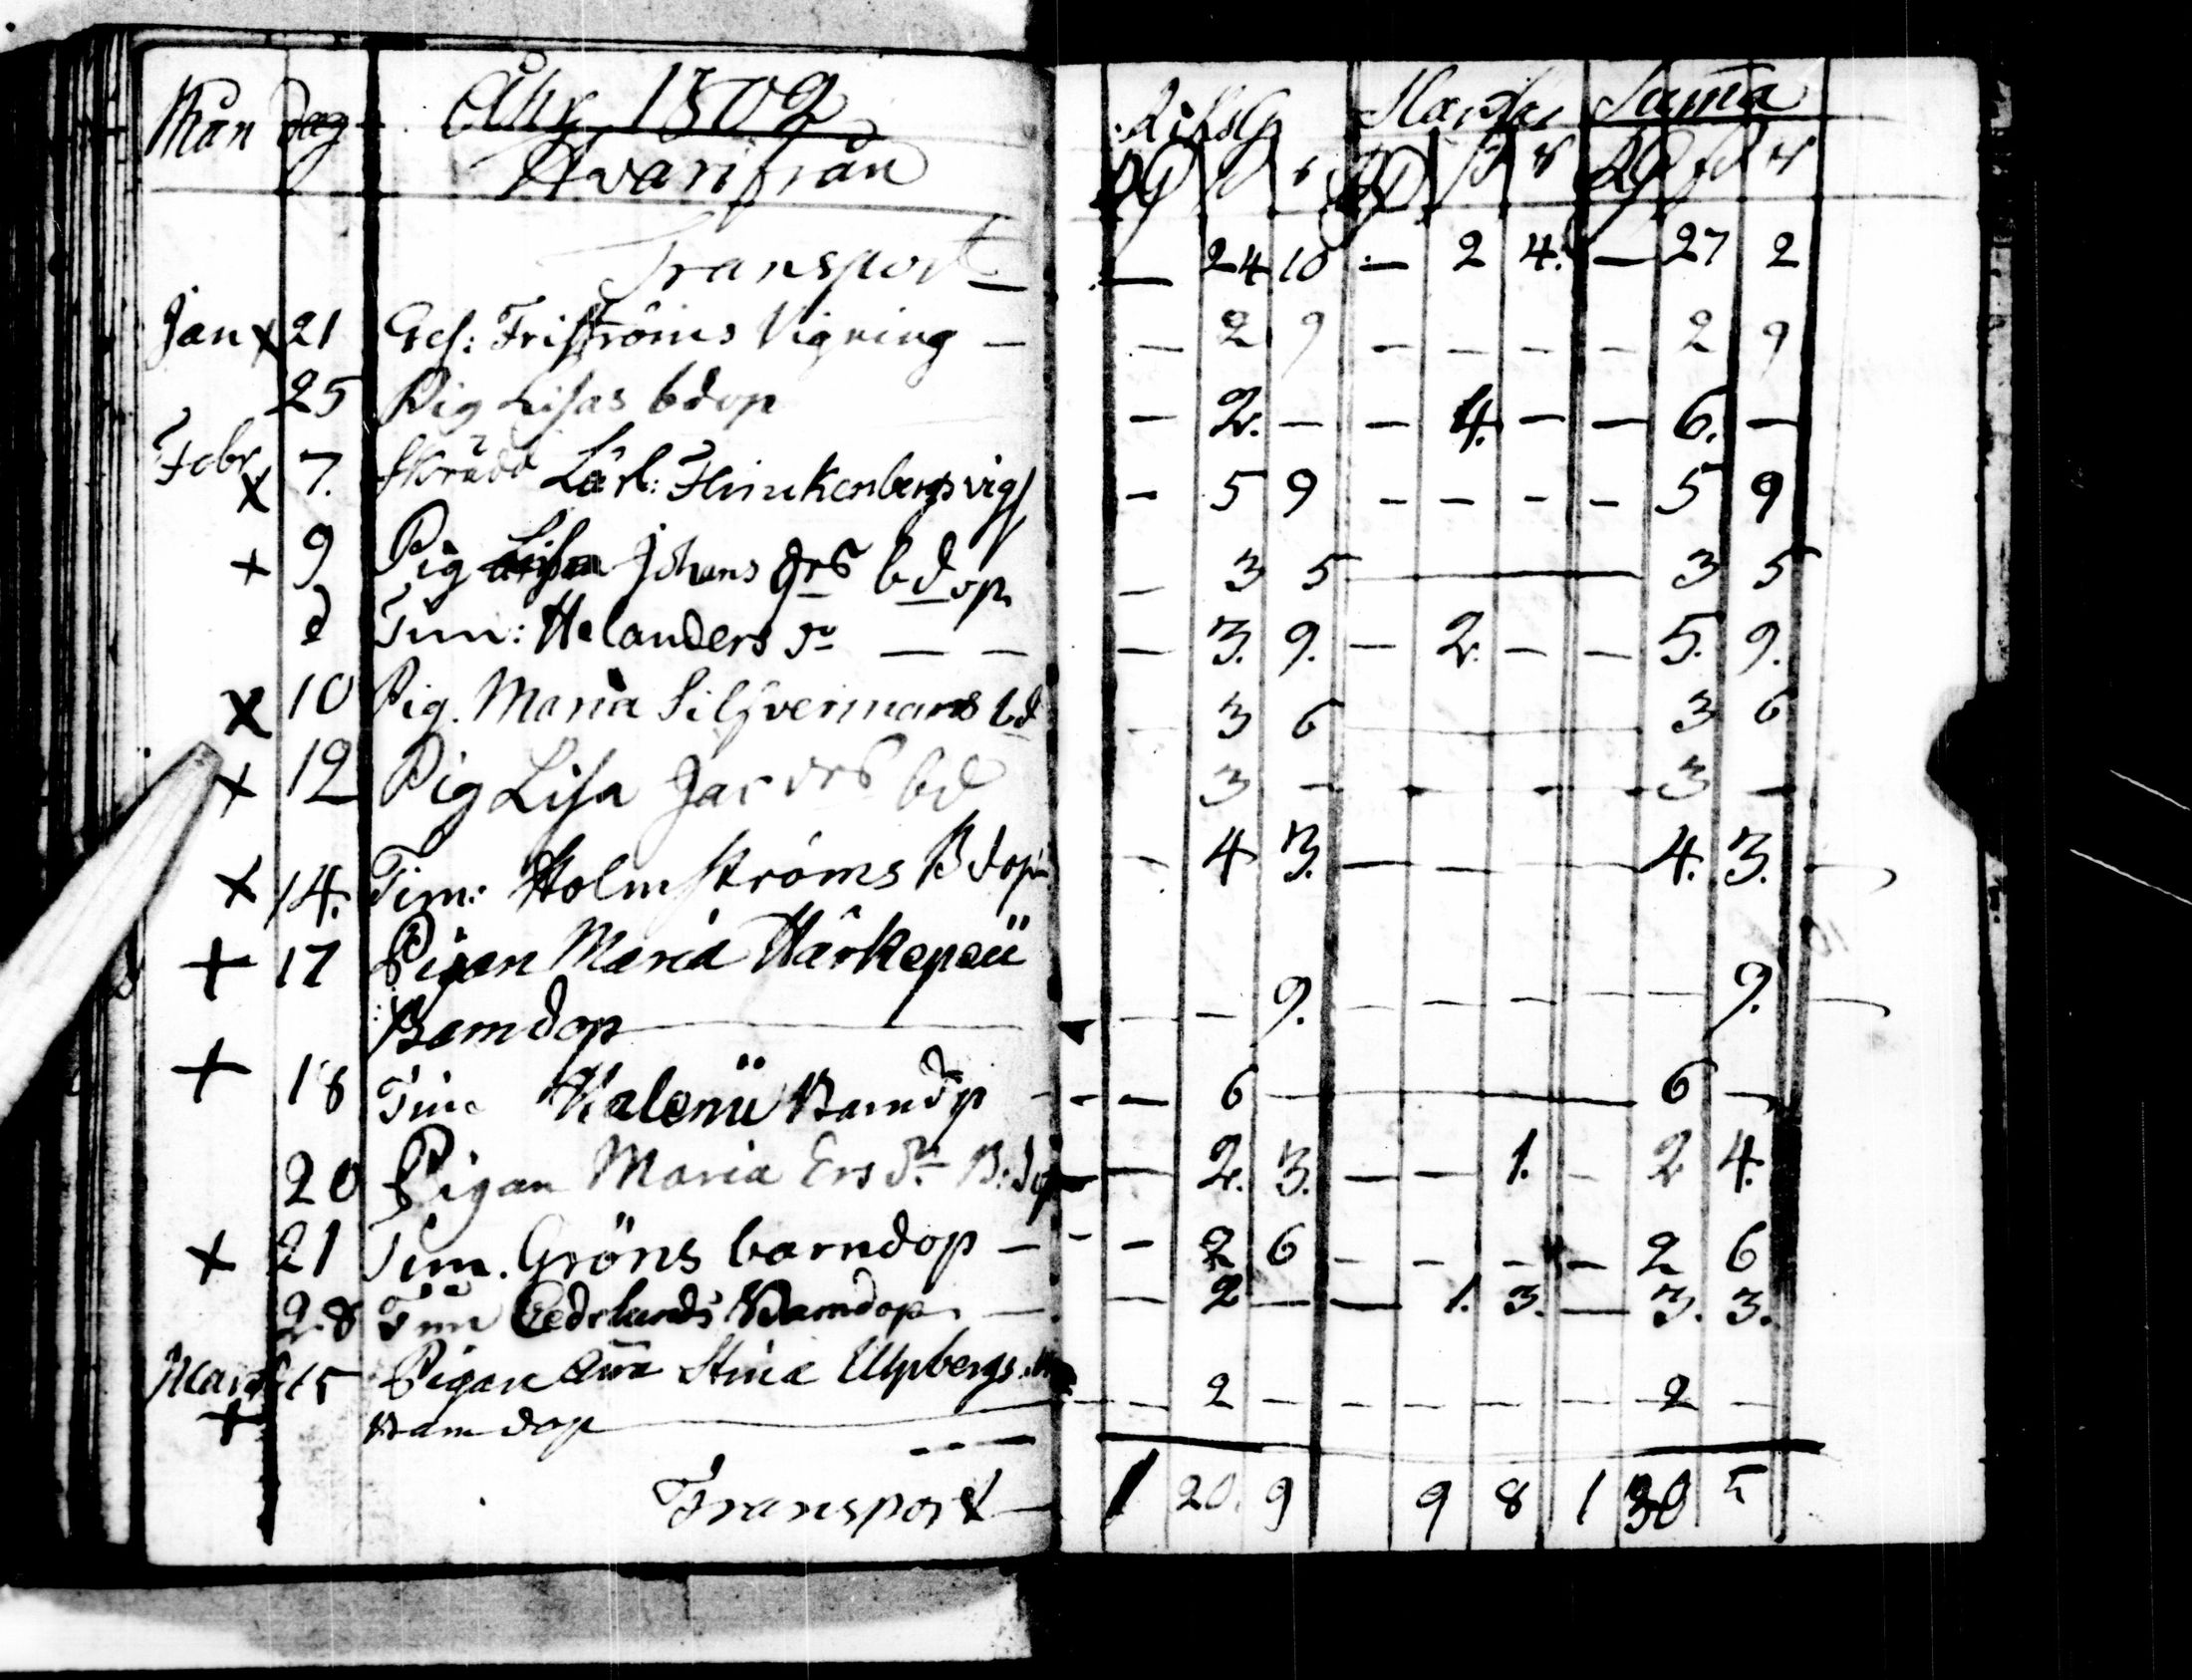 Mån Dag Åhr 1802
Hvarifrån
Riksg Slantar Suma
Transport — — 24 10 — 2 4. — 27 2
Jan x 21 Ges: Friströms Vigning — — 2 9 - - - - 2 9
25 Pig Lisas bdop — 2. — — 4. — — 6. —
Febr x 7. Skrädd Lärl: Flinckenbergs vigs - 5 9 - - - - 5 9
+ 9 Pig Johans drs bdop — 3 5 — 3 5
d Tim: Helanders do — — — 3. 9. — 2. — — 5. 9.
x 10 Pig. Maria Silfvermans bd 3 6 3 6
+ 12 Pig Lisa Jac drs bd 3 - - - - - 3 -
x 14. Tim: Holmströms Bdop - 4 3. — — — 4. 3.
+ 17 Pigan Maria Härkepeü
Barndop — — — 9. — — — — — 9.
+ 18 Tim Kalenü Barndp - - — 6 — 6 —
20 Pigan Maria Ers dr B:dop — 2. 3. — — 1. - 2 4.
+ 21 Tim. Gröns barndop — - — 2 6 - - - — 2 6
28 Tim Barndop — — 2 — — 1. 3. — 3. 3.
Mart 15 Pigan Stina
+ Barndop — — 2 — — — — — 2 —
Transport — 1 20. 9 9 8 1 30 5